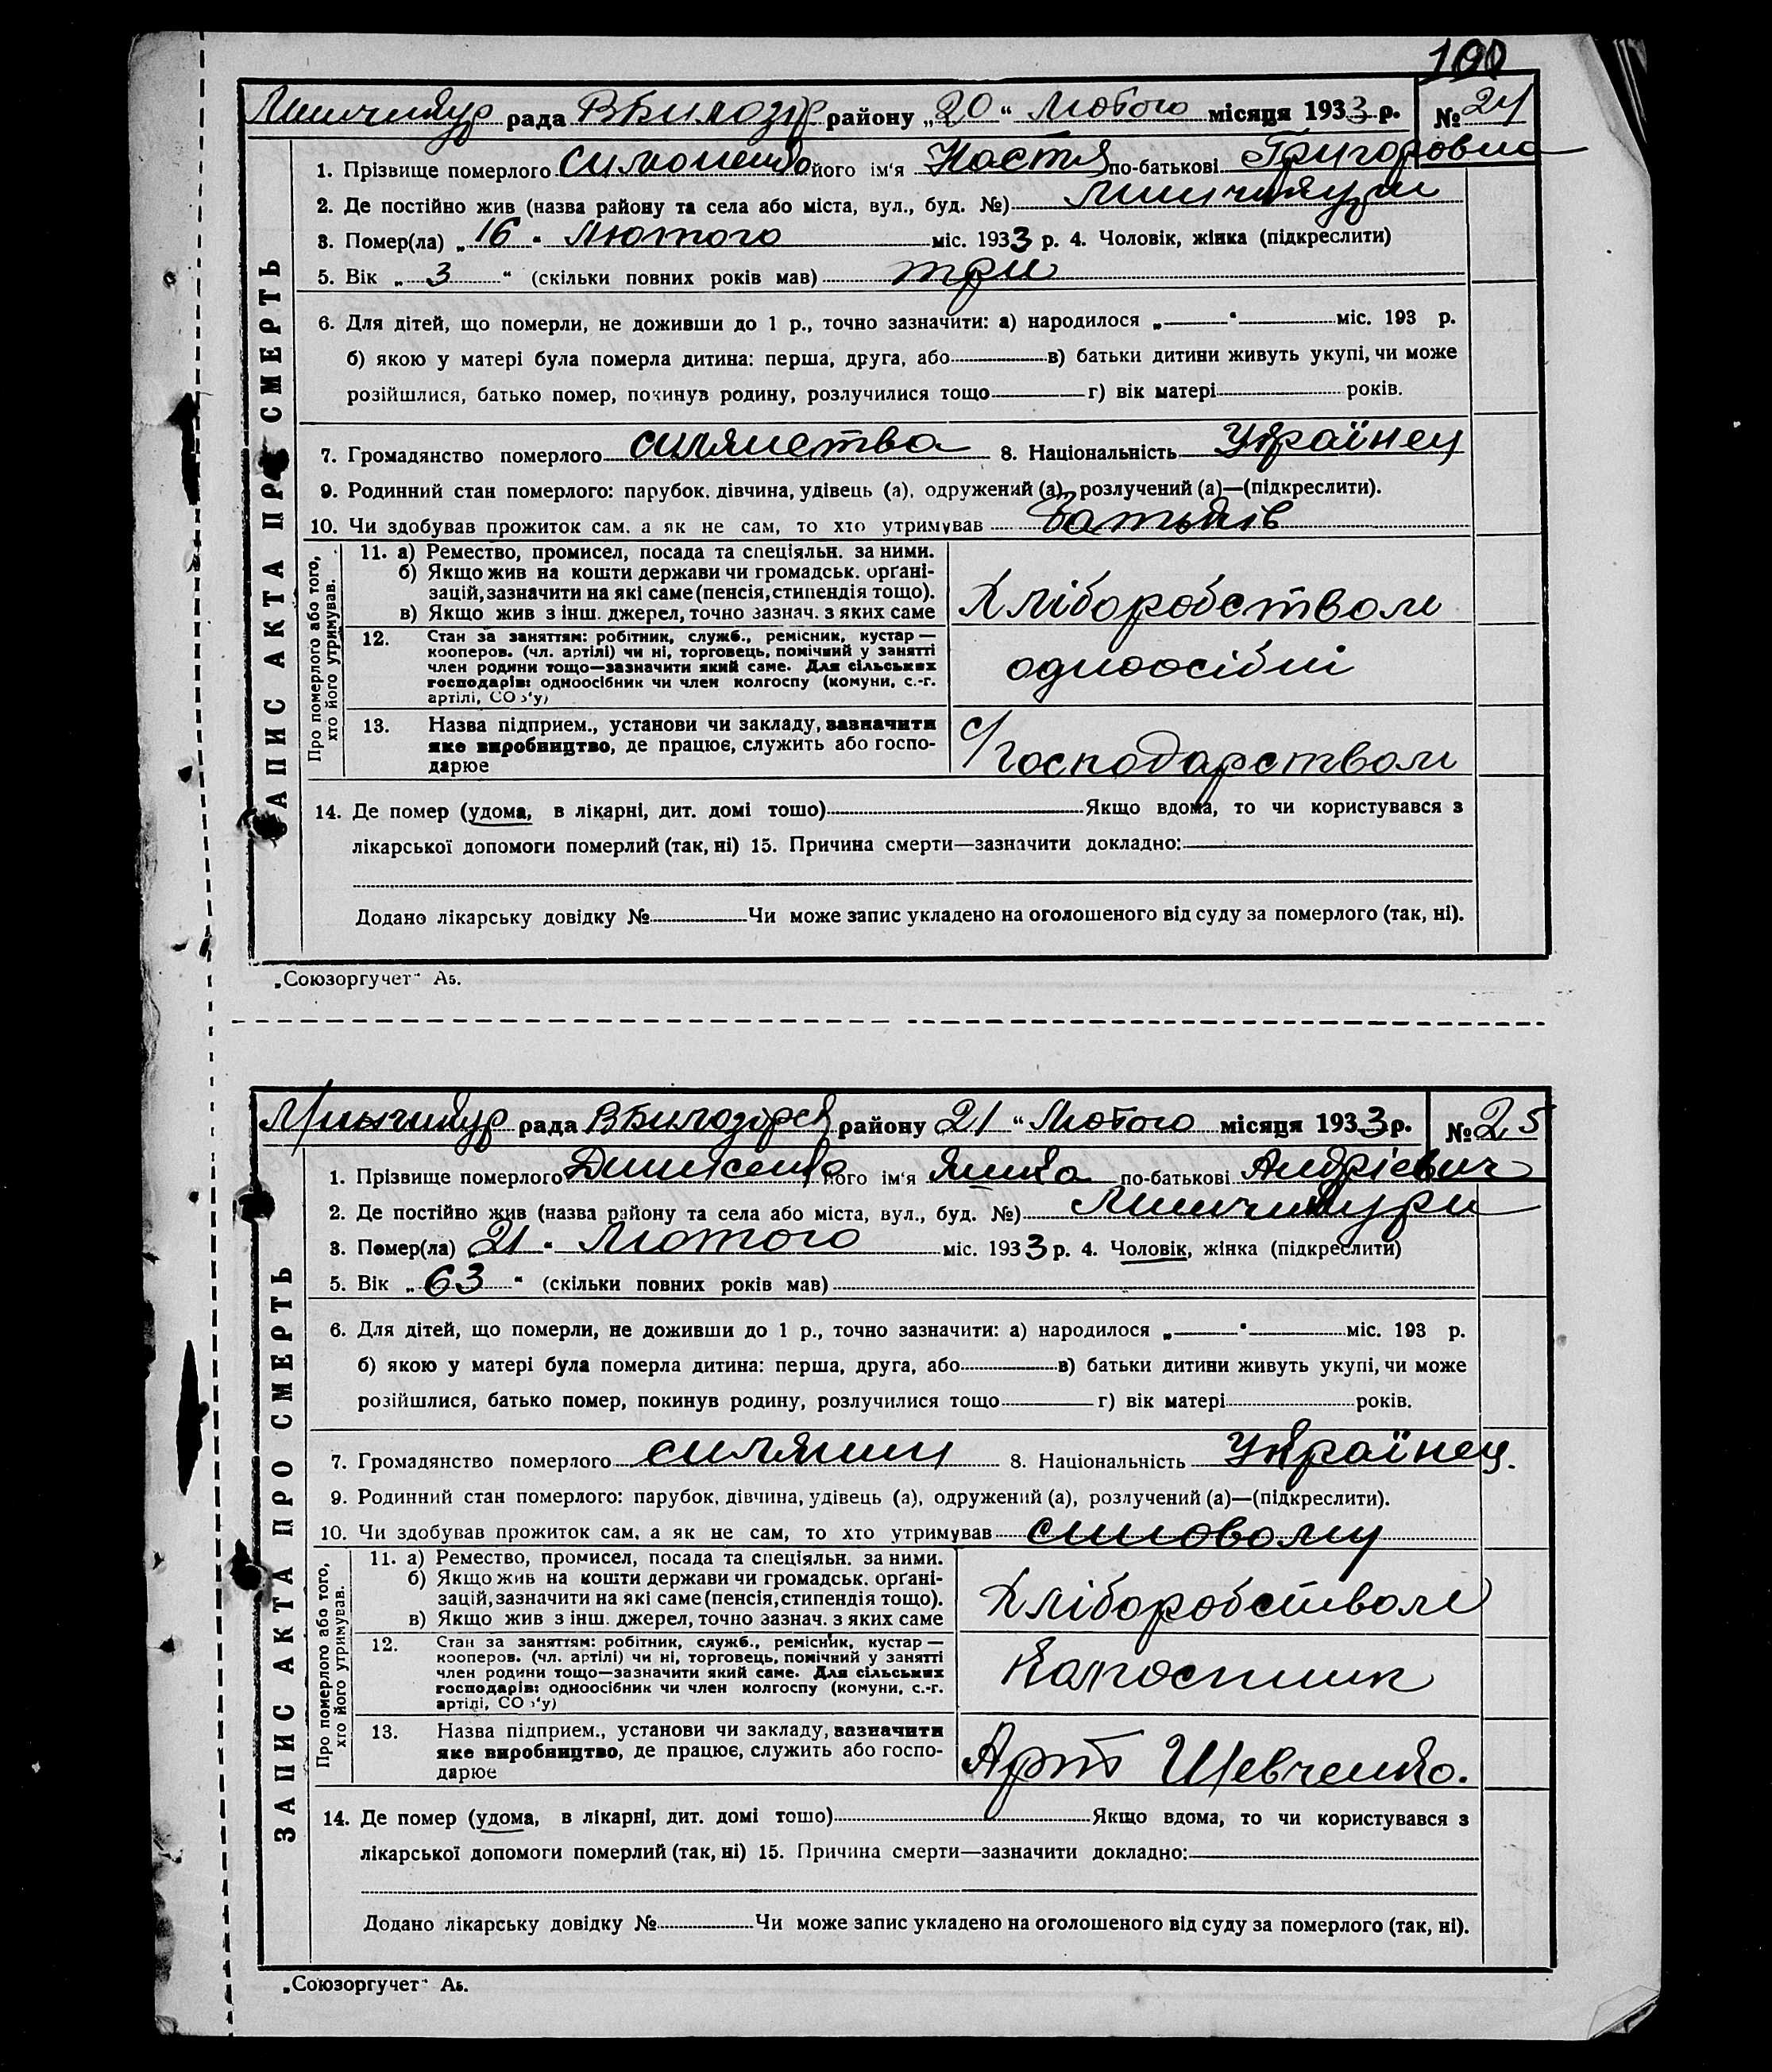 100
Минчикур рада ВБилозір району „20“ Лютого місяця 1933 р. № 24
1. Прізвище померлого Симоненко його ім'я Настя по-батькові Григоровна
2. Де постійно жив (назва району та села або міста, вул., буд. №)
3. Помер(ла) „16“ Лютого міс. 1933 р. 4. Чоловік, жінка (підкреслити)
5. Вік „3“ (скільки повних років мав) три
6. Для дітей, що померли, не доживши до 1 р., точно зазначити: а) народилося „—“ міс. 193 р.
б) якою у матері була померла дитина: перша, друга, або в) батьки дитини живуть укупі, чи може
розійшлися, батько помер, покинув родину, розлучилися тощо г) вік матері років.
7. Громадянство померлого силянства 8. Національність Українец
9. Родинний стан померлого: парубок, дівчина, удівець (а), одружений (а), розлучений (а)—(підкреслити).
10. Чи здобував прожиток сам, а як не сам, то хто утримував батьків
11. а) Ремество, промисел, посада та спеціяльн. за ними.
б) Якщо жив на кошти держави чи громадськ. орґані-
зацій, зазначити на які саме (пенсія, стипендія тощо).
в) Якщо жив з інш. джерел, точно зазнач. з яких саме
Хліборобством
12. Стан за заняттям: робітник, служб., ремісник, кустар —
кооперов. (чл. артілі) чи ні, торговець, помічний у занятті
член родини тощо—зазначити який саме. Для сільських
господарів: одноосібник чи член колгоспу (комуни, с.-г.
артілі, СО з'у)
одноосібні
13. Назва підприєм., установи чи закладу, зазначити
яке виробництво, де працює, служить або госпо-
дарює
с/господарством
14. Де помер (удома, в лікарні, дит. домі тошо) Якщо вдома, то чи користувався з
лікарської допомоги померлий (так, ні) 15. Причина смерти—зазначити докладно:
Додано лікарську довідку № Чи може запис укладено на оголошеного від суду за померлого (так, ні).
ЗАПИС АКТА ПРО СМЕРТЬ
Про померлого або того,
хто його утримував.
„Союзоргучет“ А5.
Минчикур рада ВБилозірск району 21“ Лютого місяця 1933 р. № 25
1. Прізвище померлого його ім'я по-батькові Андрієвич
2. Де постійно жив (назва району та села або міста, вул., буд. №) Минчикури
3. Помер(ла) „21“ Лютого міс. 1933 р. 4. Чоловік, жінка (підкреслити)
5. Вік „63“ (скільки повних років мав)
6. Для дітей, що померли, не доживши до 1 р., точно зазначити: а) народилося „—“ міс. 193 р.
б) якою у матері була померла дитина: перша, друга, або в) батьки дитини живуть укупі, чи може
розійшлися, батько помер, покинув родину, розлучилися тощо г) вік матері років.
7. Громадянство померлого силянин 8. Національність Українец.
9. Родинний стан померлого: парубок, дівчина, удівець (а), одружений (а), розлучений (а)—(підкреслити).
10. Чи здобував прожиток сам, а як не сам, то хто утримував
11. а) Ремество, промисел, посада та спеціяльн. за ними.
б) Якщо жив на кошти держави чи громадськ. орґані-
зацій, зазначити на які саме (пенсія, стипендія тощо).
в) Якщо жив з інш. джерел, точно зазнач. з яких саме
Хліборобством
12. Стан за заняттям: робітник, служб., ремісник, кустар —
кооперов. (чл. артілі) чи ні, торговець, помічний у занятті
член родини тощо—зазначити який саме. Для сільських
господарів: одноосібник чи член колгоспу (комуни, с.-г.
артілі, СО з'у)
13. Назва підприєм., установи чи закладу, зазначити
яке виробництво, де працює, служить або госпо-
дарює
Арт Шевченко.
14. Де помер (удома, в лікарні, дит. домі тошо) Якщо вдома, то чи користувався з
лікарської допомоги померлий (так, ні) 15. Причина смерти—зазначити докладно:
Додано лікарську довідку № Чи може запис укладено на оголошеного від суду за померлого (так, ні).
ЗАПИС АКТА ПРО СМЕРТЬ
Про померлого або того,
хто його утримував.
„Союзоргучет“ А5.